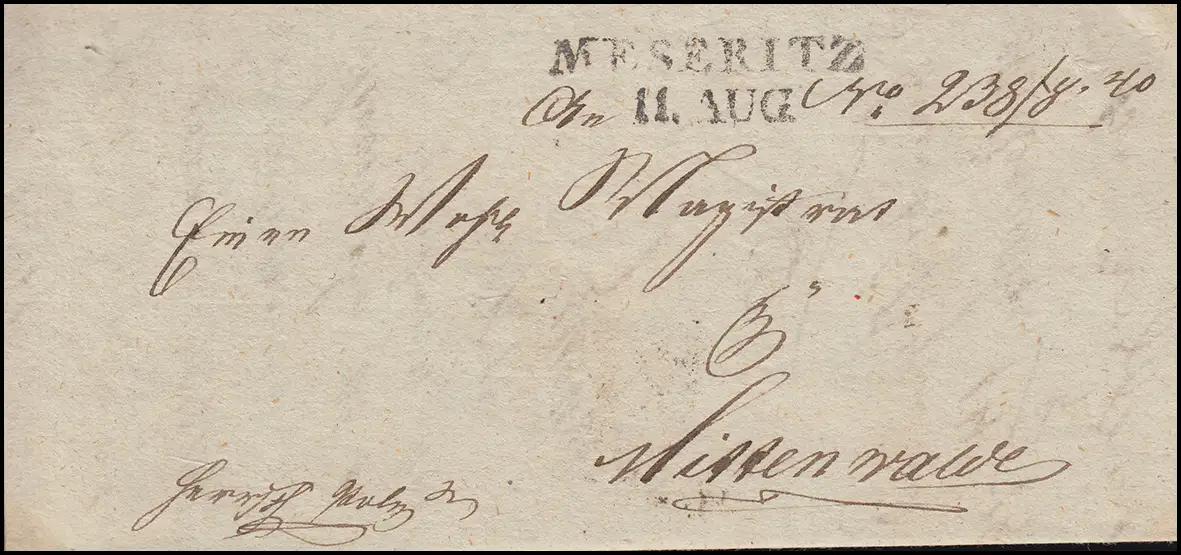 MESERITZ
11. AUG
An No 238/8. 40
Einen Wohl Magistrat
Zu
Mittenwalde